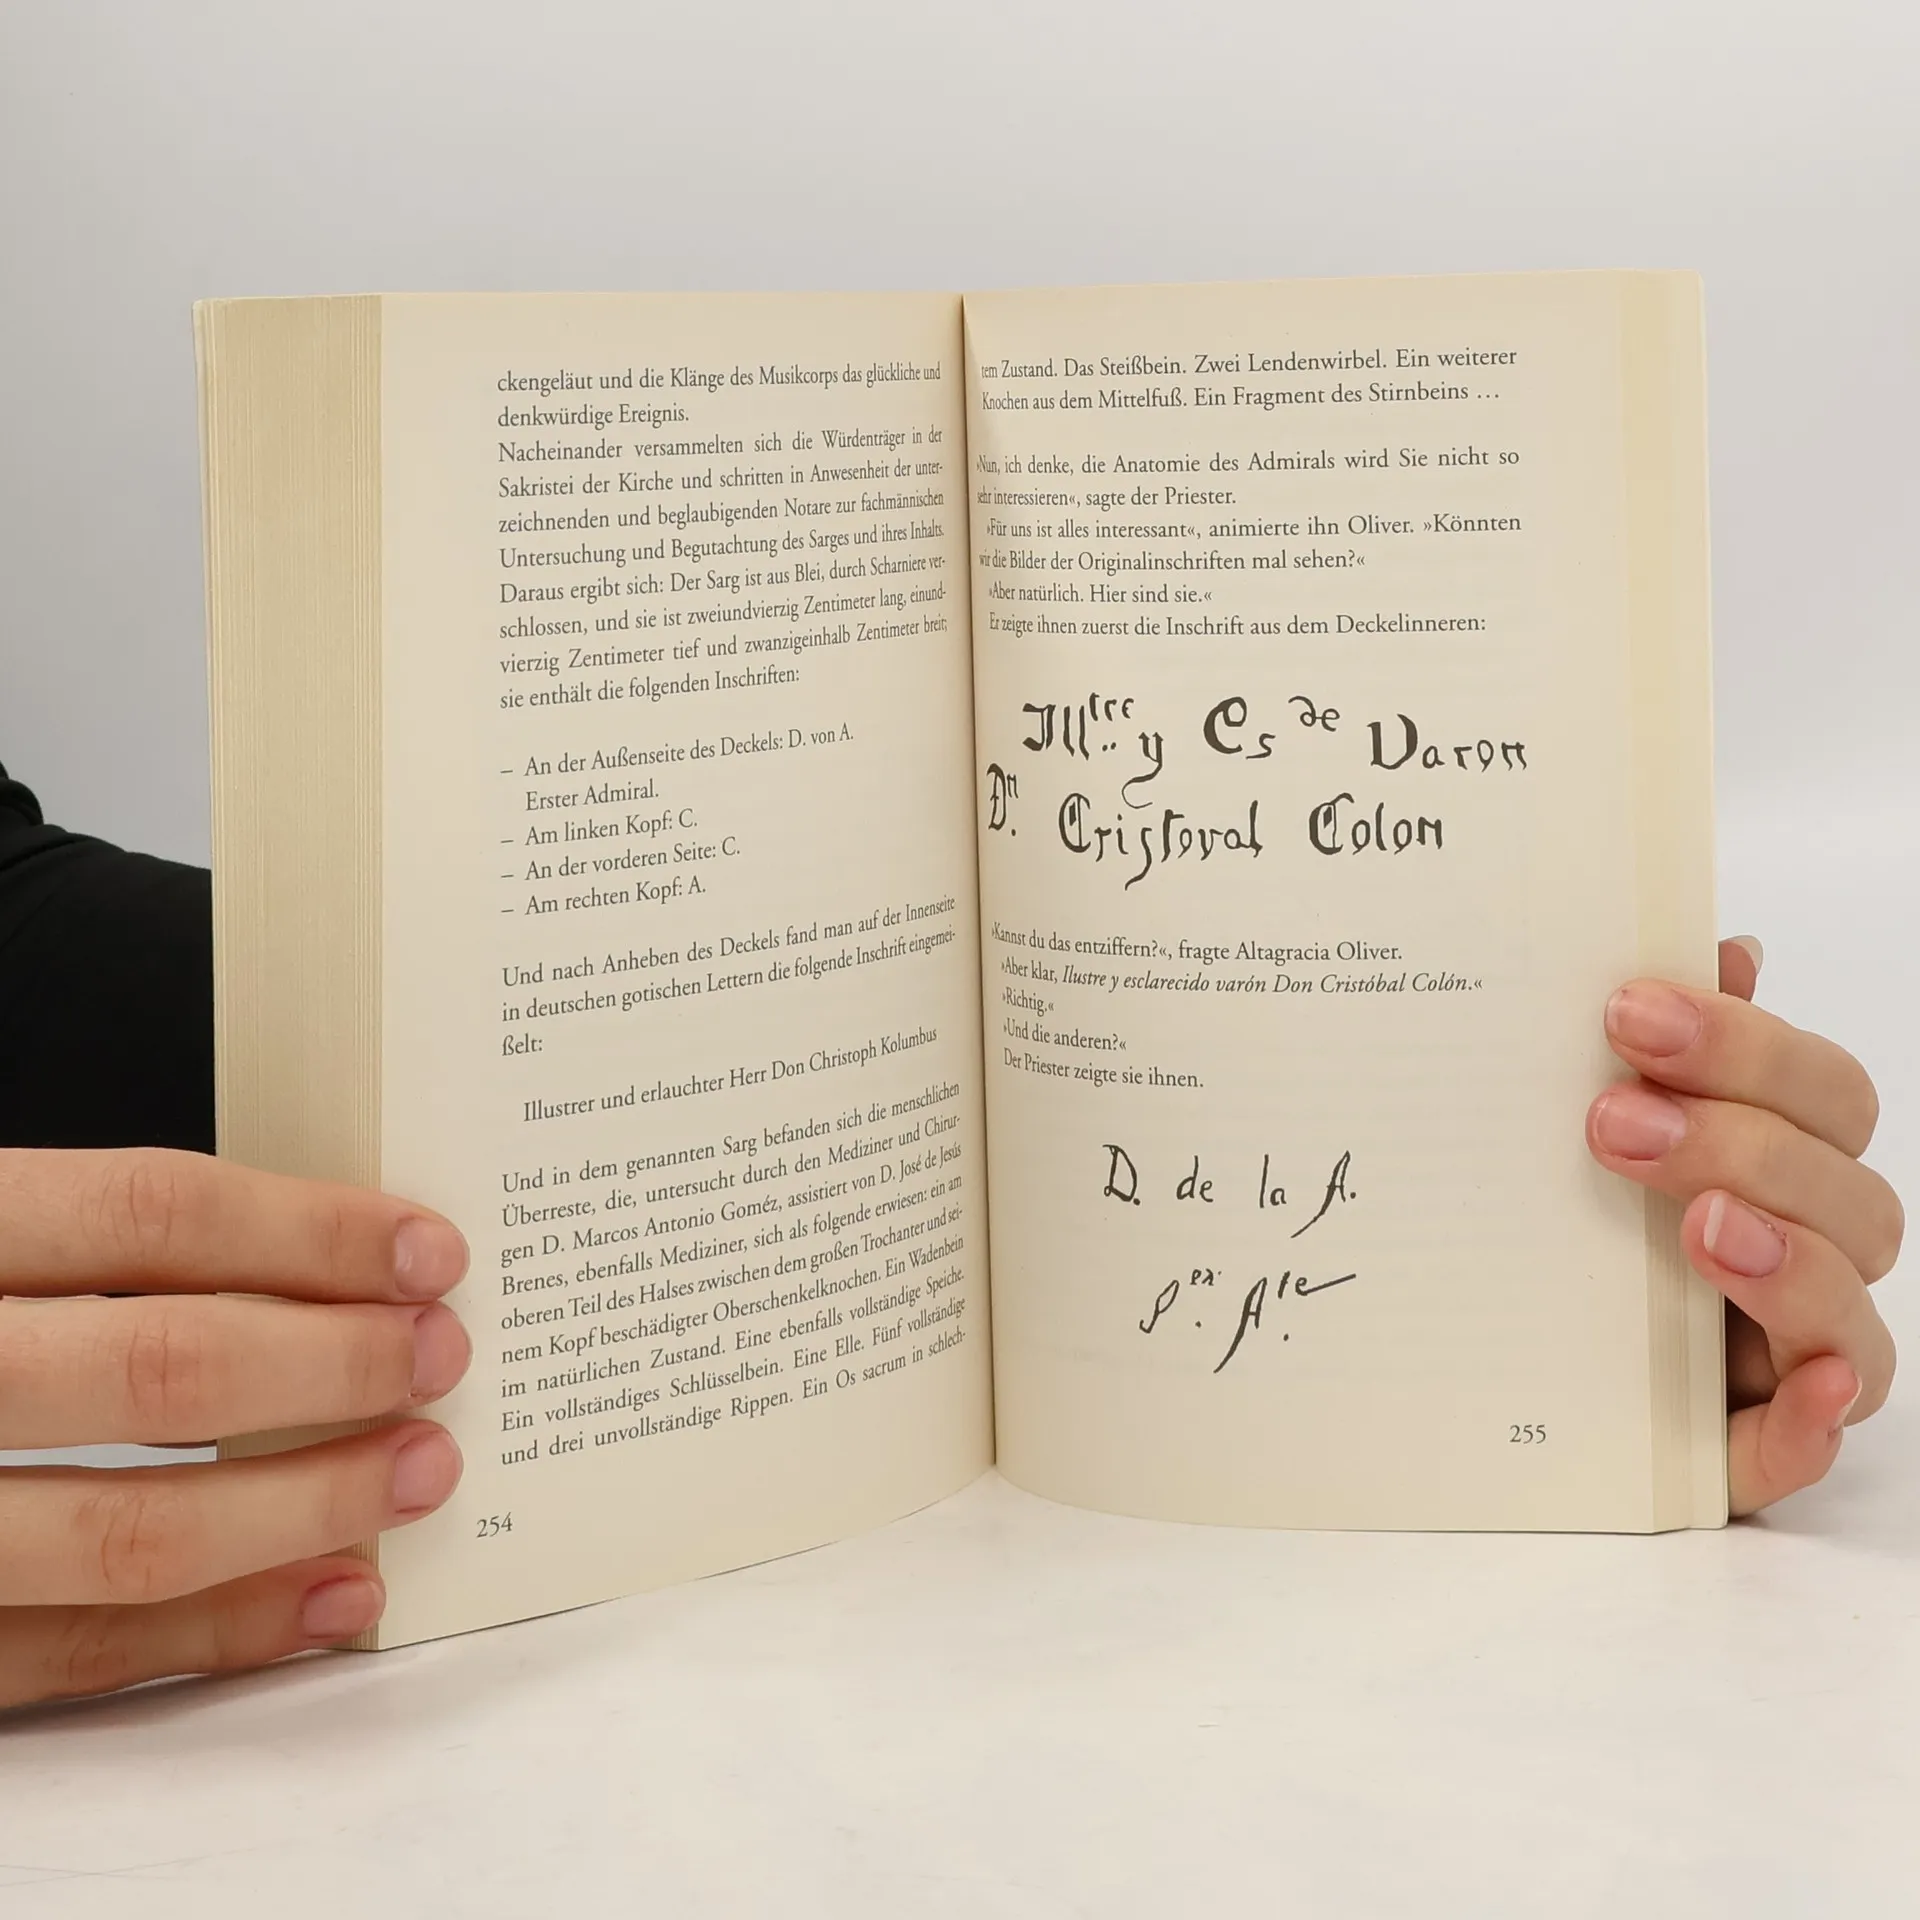 ckengeläut und die Klänge des Musikcorps das glückliche und
denkwürdige Ereignis.
Nacheinander versammelten sich die Würdenträger in der
Sakristei der Kirche und schritten in Anwesenheit der unter-
zeichnenden und beglaubigenden Notare zur fachmännischen
Untersuchung und Begutachtung des Sarges und ihres Inhalts.
Daraus ergibt sich: Der Sarg ist aus Blei, durch Scharniere ver-
schlossen, und sie ist zweiundvierzig Zentimeter lang, einund-
vierzig Zentimeter tief und zwanzigeinhalb Zentimeter breit;
sie enthält die folgenden Inschriften:
– An der Außenseite des Deckels: D. von A.
Erster Admiral.
– Am linken Kopf: C.
– An der vorderen Seite: C.
– Am rechten Kopf: A.
Und nach Anheben des Deckels fand man auf der Innenseite
in deutschen gotischen Lettern die folgende Inschrift eingemei-
ßelt:
Illustrer und erlauchter Herr Don Christoph Kolumbus
Und in dem genannten Sarg befanden sich die menschlichen
Überreste, die, untersucht durch den Mediziner und Chirur-
gen D. Marcos Antonio Goméz, assistiert von D. José de Jesús
Brenes, ebenfalls Mediziner, sich als folgende erwiesen: ein am
oberen Teil des Halses zwischen dem großen Trochanter und sei-
nem Kopf beschädigter Oberschenkelknochen. Ein Wadenbein
im natürlichen Zustand. Eine ebenfalls vollständige Speiche.
Ein vollständiges Schlüsselbein. Eine Elle. Fünf vollständige
und drei unvollständige Rippen. Ein Os sacrum in schlech-
254
tem Zustand. Das Steißbein. Zwei Lendenwirbel. Ein weiterer
Knochen aus dem Mittelfuß. Ein Fragment des Stirnbeins …
»Nun, ich denke, die Anatomie des Admirals wird Sie nicht so
sehr interessieren«, sagte der Priester.
»Für uns ist alles interessant«, animierte ihn Oliver. »Könnten
wir die Bilder der Originalinschriften mal sehen?«
»Aber natürlich. Hier sind sie.«
Er zeigte ihnen zuerst die Inschrift aus dem Deckelinneren:
Illtre y Es de Varon
Dn. Cristoval Colon
»Kannst du das entziffern?«, fragte Altagracia Oliver.
»Aber klar, Ilustre y esclarecido varón Don Cristóbal Colón.«
»Richtig.«
»Und die anderen?«
Der Priester zeigte sie ihnen.
D. de la A.
Per. Ate.
255